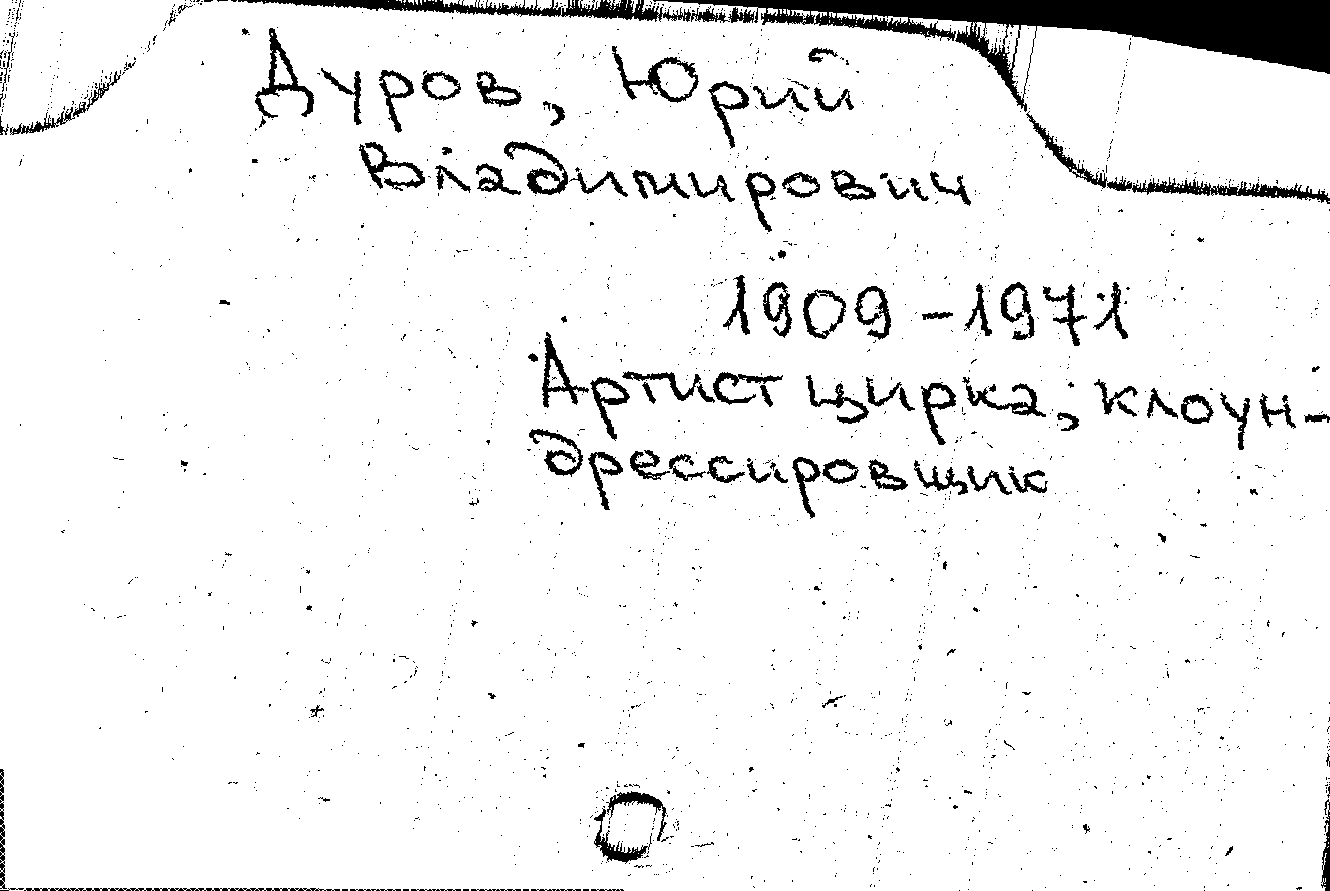 Дуров, Юрий
Владимирович
1909-1971
Артист цирка, клоун-
дрессировщик